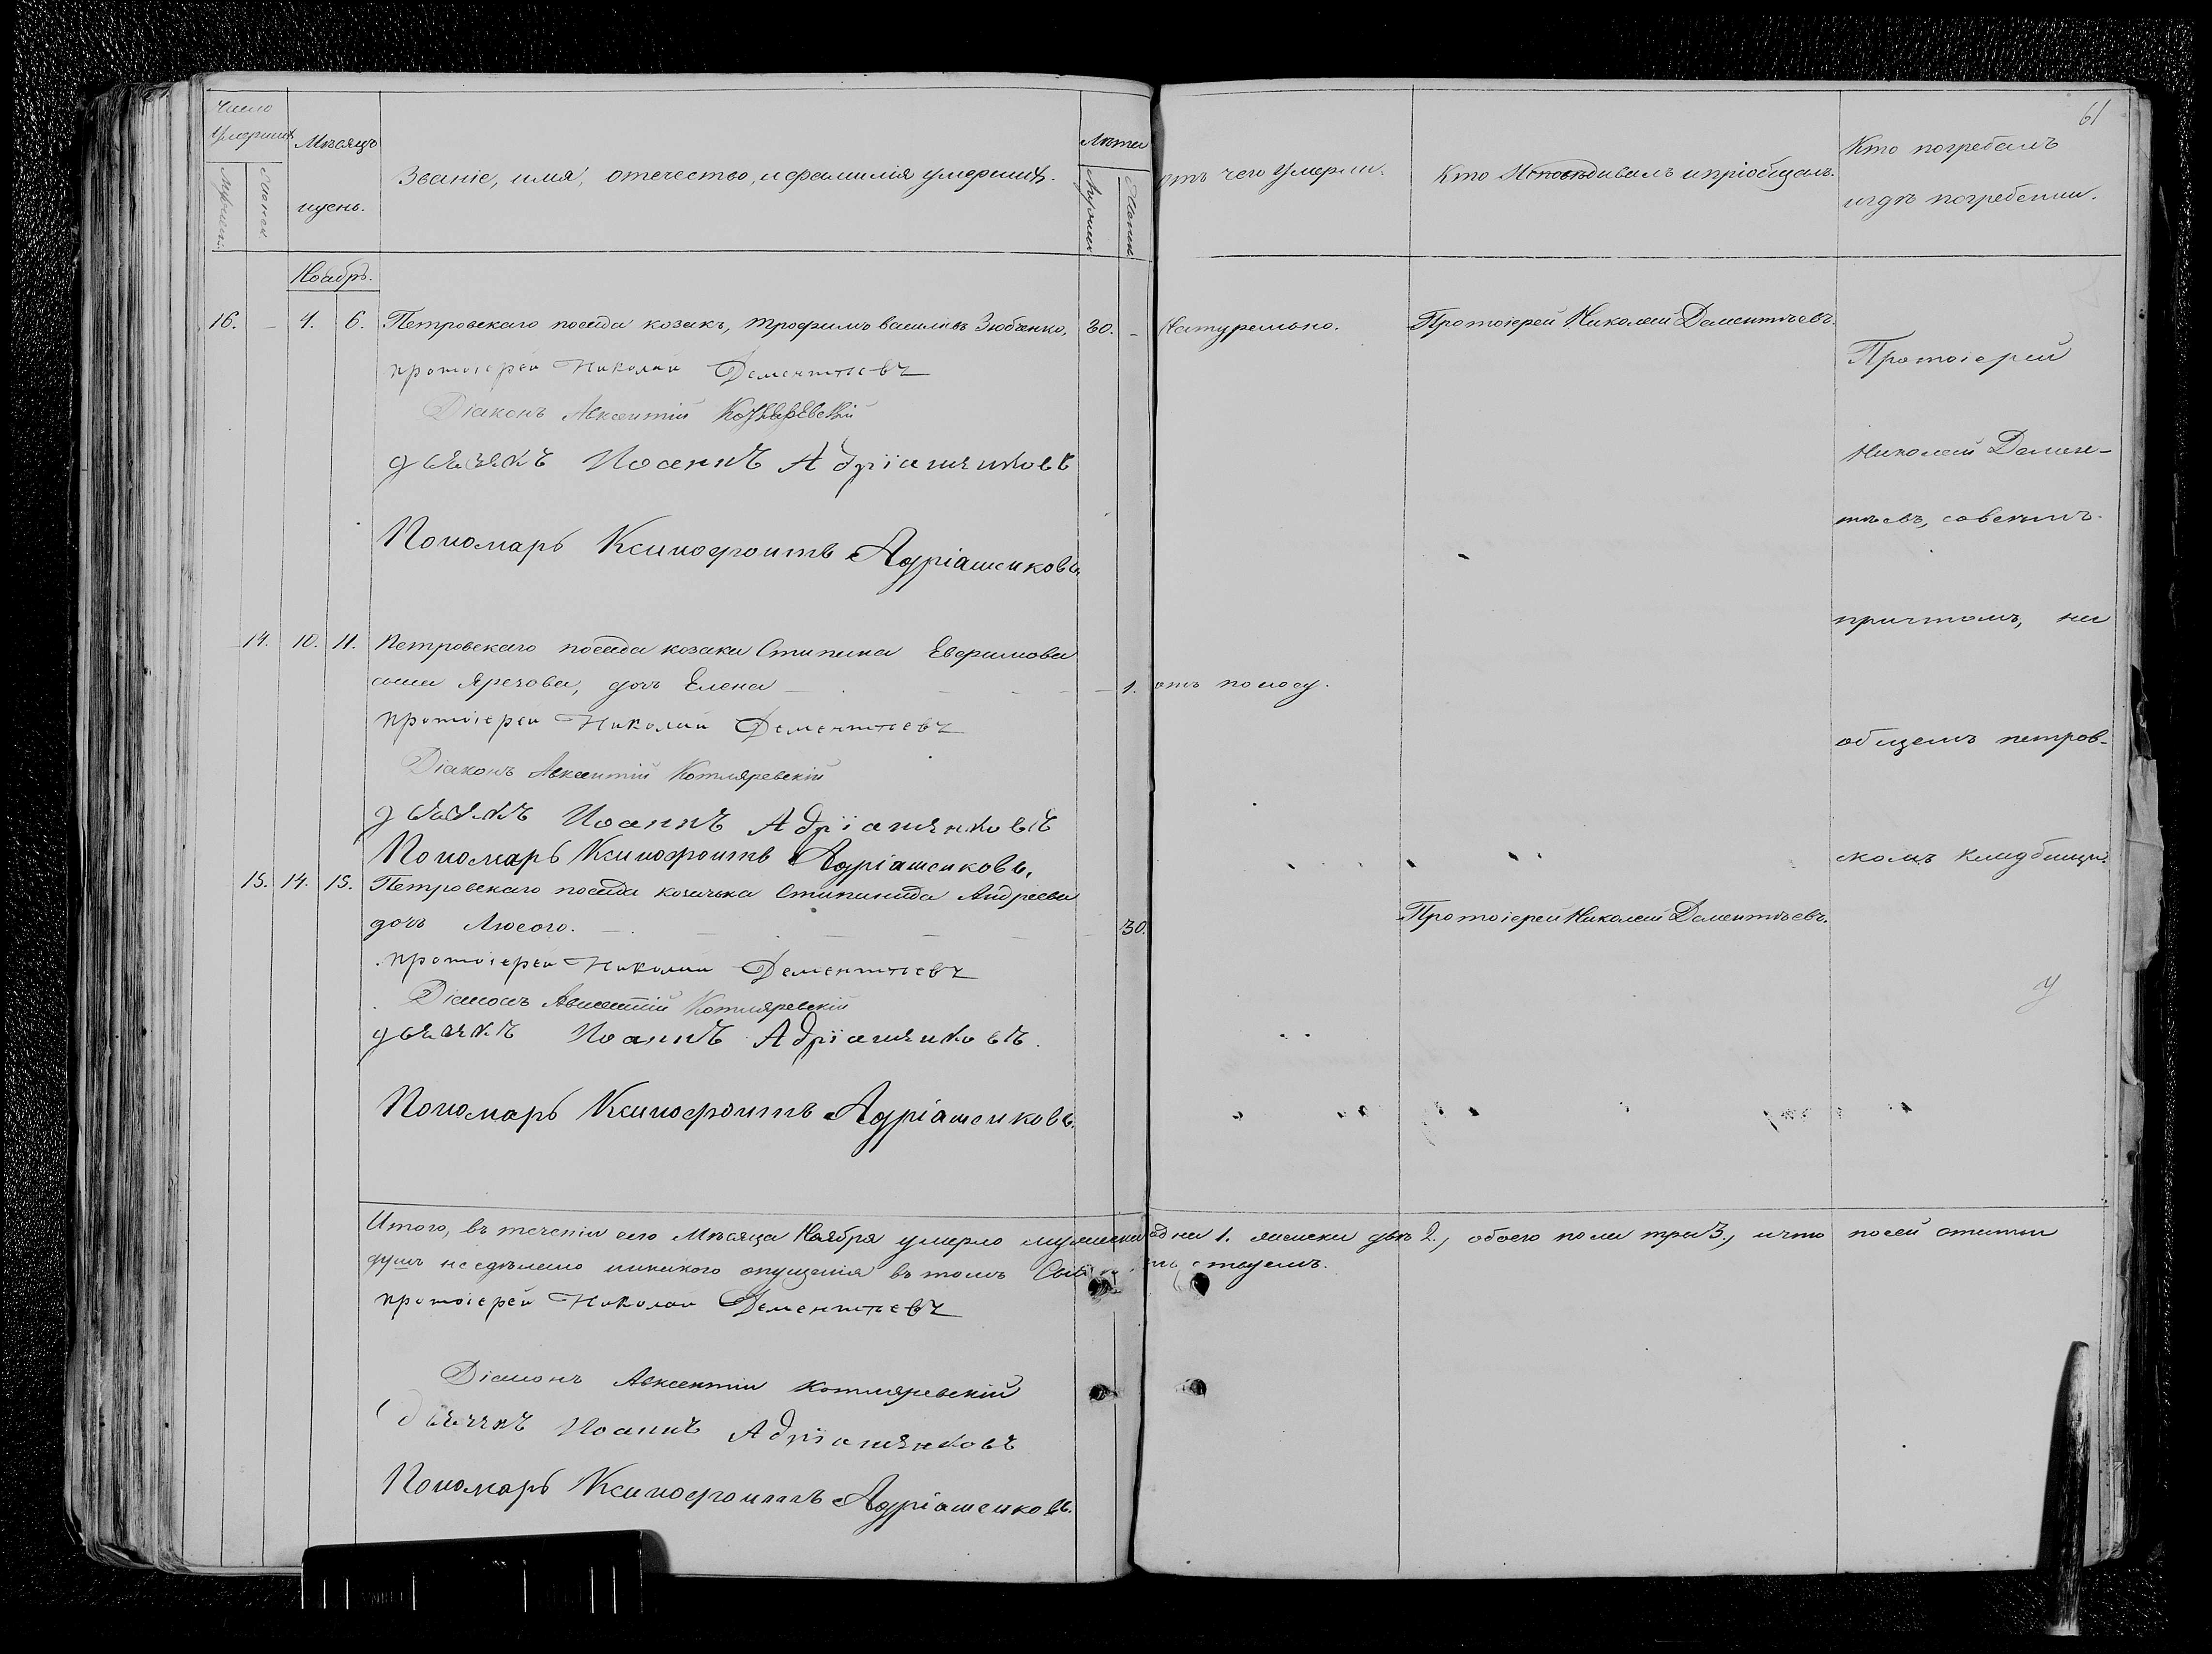 61
Число умершихъ
Мужеска
Женска
Мѣсяцъ
и день.
Званіе, имя, отечество, и фамилія умершихъ.
Лѣта
Мужска
Женска
отъ чего умерли.
Кто Исповѣдывалъ и пріобщалъ.
Кто погребалъ
и гдѣ погребении.
Ноябрь.
16. – 4. 6. Петровскаго посада козакъ, Трофимъ васильевъ Зюбенко, 30. – Натурально. Протоіерей Николай Дементьевъ.
протоіерей Николай Дементьевъ
Діаконъ Авксентій Котляревскій
дьячекъ Иоаннъ Адріашенковъ
Пономарь Ксинофонтъ Адріашенковъ.
14. 10. 11. Петровскаго посада козака Стипана Ефимова
сына дочь Елена – 1. отъ поносу.
протоіерей Николай Дементьевъ
Діаконъ Авксентій Котляревскій
дьячекъ Иоаннъ Адріашенковъ
Пономарь Ксинофонтъ Адріашенковъ.
15. 14. 15. Петровскаго посада козачька Стипанида Андреева
дочь Люсого. – 30. Протоіерей Николай Дементьевъ.
протоіерей Николай Дементьевъ
Діаконъ Авксентій Котляревскій
дьячекъ Иоаннъ Адріашенковъ.
Пономарь Ксинофонтъ Адріашенковъ.
Протоіерей
Николай Демен-
тьевъ, совсимъ
причтомъ, на
общемъ петров-
скомъ кладбищи.
Итого, въ теченіи сего Мѣсяца Ноября умерло мужеска одна 1. женска двѣ 2., обоего пола три 3., и что посей статьи
душъ несдѣлано никакого опущенія въ томъ
протоіерей Николай Дементьевъ
Діаконъ Авксентій Котляревскій
дьячекъ Иоаннъ Адріашенковъ
Пономарь Ксинофонтъ Адріашенковъ.